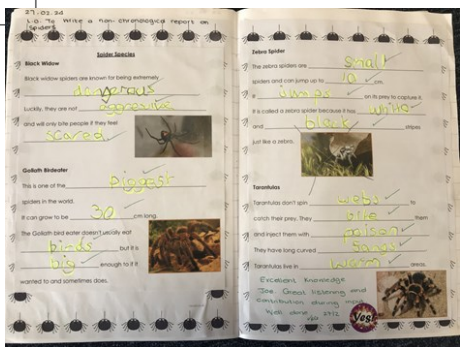 27.02.24
L.O. To write a non-chronological report on
spiders
Spider Species
Black Widow
Black widow spiders are known for being extremely
dangerous
Luckily, they are not aggressive
and will only bite people if they feel
scared
Goliath Birdeater
This is one of the biggest
spiders in the world.
It can grow to be 30 cm long.
The Goliath bird eater doesn't usually eat
birds but it is
big enough to if it
wanted to and sometimes does.
Zebra Spider
The zebra spiders are small
spiders and can jump up to 10 cm.
It jumps on its prey to capture it.
It is called a zebra spider because it has white
and black stripes
just like a zebra.
Tarantulas
Tarantulas don't spin webs to
catch their prey. They bite them
and inject them with poison
They have long curved fangs
Tarantulas live in warm areas.
Excellent knowledge
Joe. Great listening and
contribution during input
Well done
Yes!